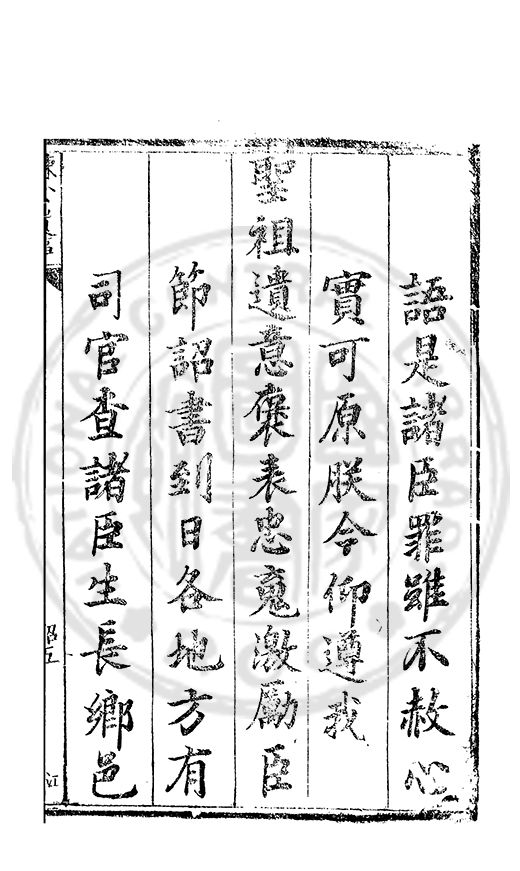 語是諸臣罪雖不赦心
實可原朕今仰遵我
聖祖遺意褒表忠魂激勵臣
節詔書到日各地方有
司官查諸臣生長鄉邑